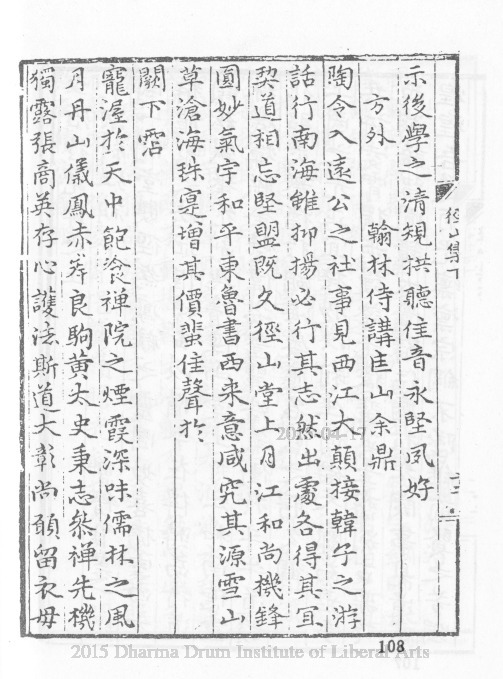 徑山集下
十二
示後學之清規拱聽佳音永堅夙好
方外 翰林侍講匡山余鼎
陶令入遠公之社事見西江大顛接韓子之游
話行南海雖抑揚必行其志然出處各得其宜
契道相忘堅盟既久徑山堂上月江和尚機鋒
圓妙氣宇和平東魯書西來意咸究其源雪山
草滄海珠寔增其價蜚佳聲於
闕下霑
寵渥於天中飽飡禪院之煙霞深味儒林之風
月丹山儀鳳赤
良駒黃太史秉志叅禪先機
獨露張商英存心護法斯道大彰尚頋留衣毋
2015-04-17
108
2015 Dharma Drum Institute of Liberal Arts